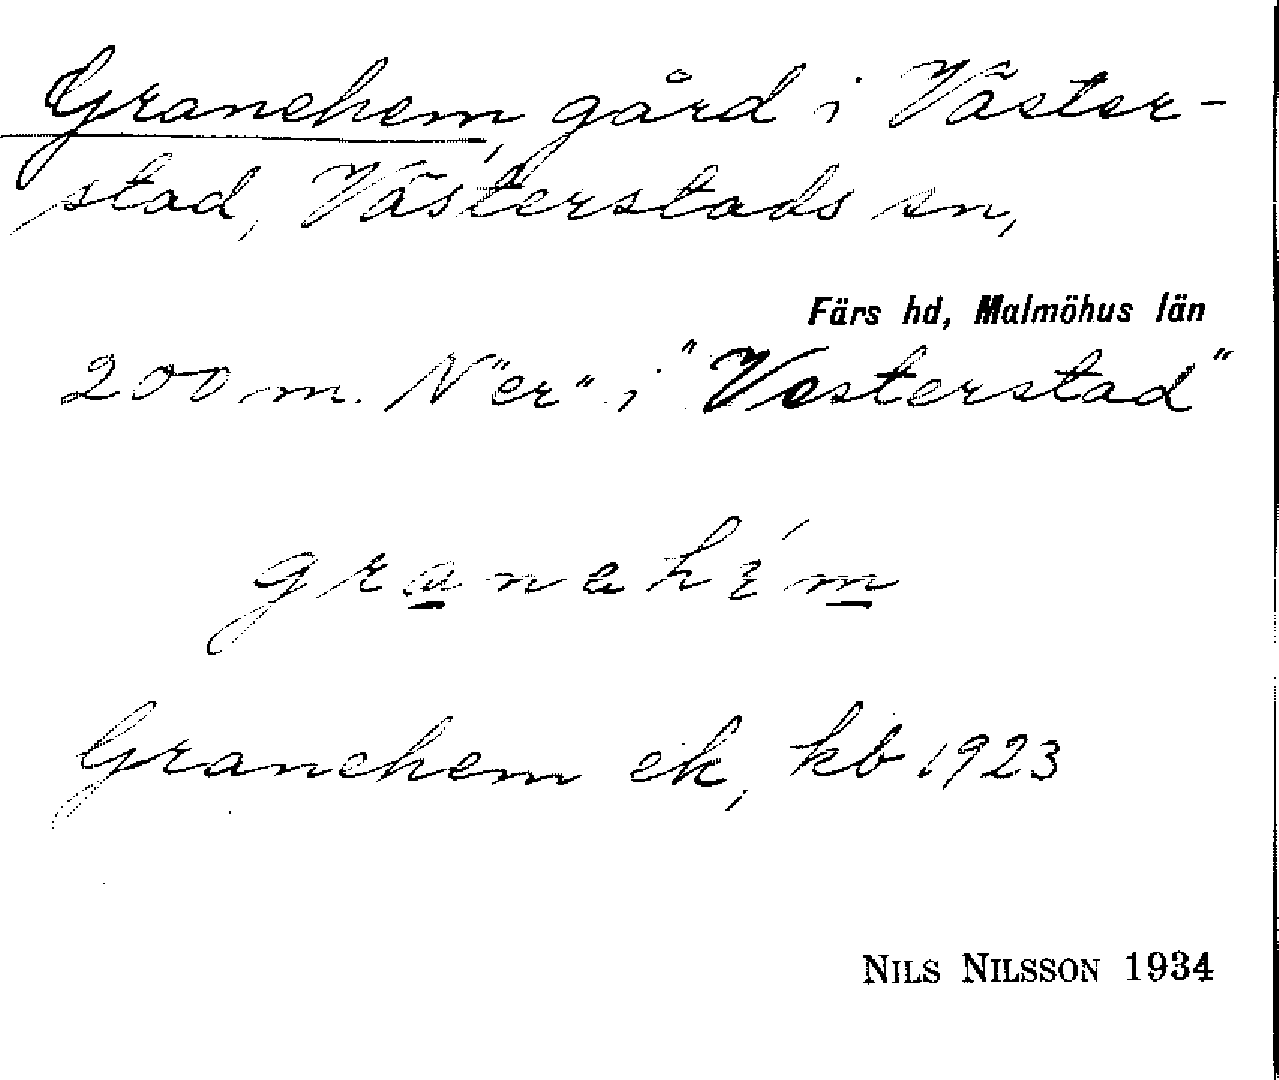 Granehem, gård i Väster-
stad, Västerstads sn,
Färs hd, Malmöhus län
200 m. N "er" i "Vesterstad"
Granehem ek, kb 1923
NILS NILSSON 1934